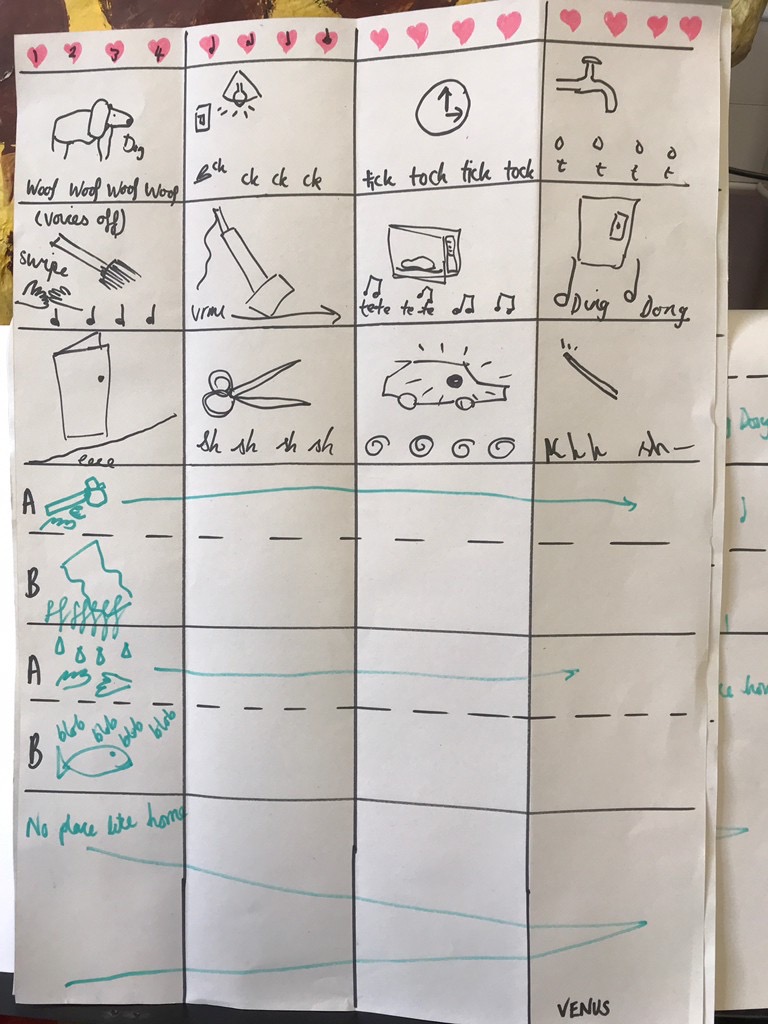 1 2 3 4
Dog
Woof Woof Woof Woof
ck ck ck
tick tock tick tock
t t t t
(voices off)
swipe
te te te te
Ding Dong
eeee
sh sh sh sh
sh
A
B
A
blob blob blob blob
B
No place like home
VENUS
Dong